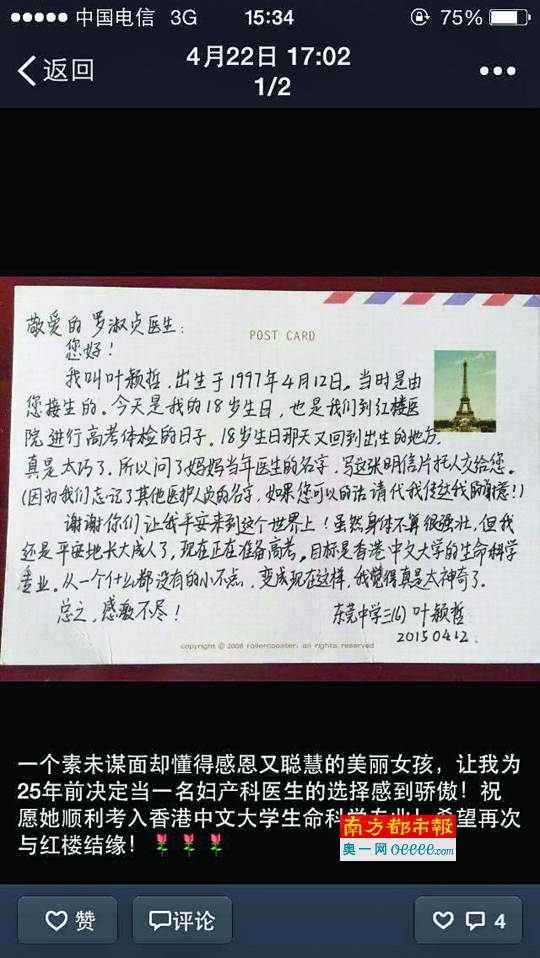 中国电信 3G 15:34 75%
返回 4月22日 17:02
1/2
敬爱的罗淑贞医生：
POST CARD
您好！
我叫叶颖哲，出生于1997年4月12日。当时是由
您接生的。今天是我的18岁生日，也是我们到红楼医
院进行高考体检的日子。18岁生日那天又回到出生的地方，
真是太巧了。所以问了妈妈当年医生的名字，写这张明信片托人交给您。
(因为我们忘记了其他医护人员的名字，如果您可以的话请代我传达我的谢意！)
谢谢你们让我平安来到这个世界上！虽然身体不算很强壮，但我
还是平安地长大成人了，现在正在准备高考。目标是香港中文大学的生命科学
专业。从一个什么都没有的小不点，变成现在这样，我觉得真是太神奇了。
总之，感激不尽！
东莞中学三(6) 叶颖哲
20150412
copyright © 2008 rollercoaster. all rights reserved
一个素未谋面却懂得感恩又聪慧的美丽女孩，让我为
25年前决定当一名妇产科医生的选择感到骄傲！祝
愿她顺利考入香港中文大学生命科学专业！希望再次
与红楼结缘！🌹🌹🌹
南方都市報
奥一网 oeeee.com
赞 评论 4